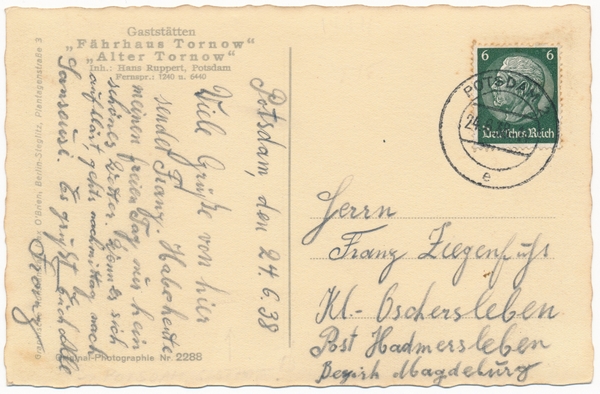 Gaststätten
„Fährhaus Tornow“
„Alter Tornow“
Inh.: Hans Ruppert, Potsdam
Fernspr.: 1240 u. 6440
Potsdam, den 24.6.38
Viele Grüße von hier
sendet Franz. Habe heute
meinen freien Tag nur kein
schönes Wetter. Wenn es sich
aufklärt gehts nachmittag nach
Sanssouci. Es grüßt Euch Alle
Franz
O'Brien, Berlin-Steglitz, Plantagenstraße 3
Original-Photographie Nr. 2288
6 6
Deutsches Reich
POTSDAM
24
e
Herrn
Franz Ziegenfuhs
Kl.-Oschersleben
Post Hadmersleben
Bezirk Magdeburg